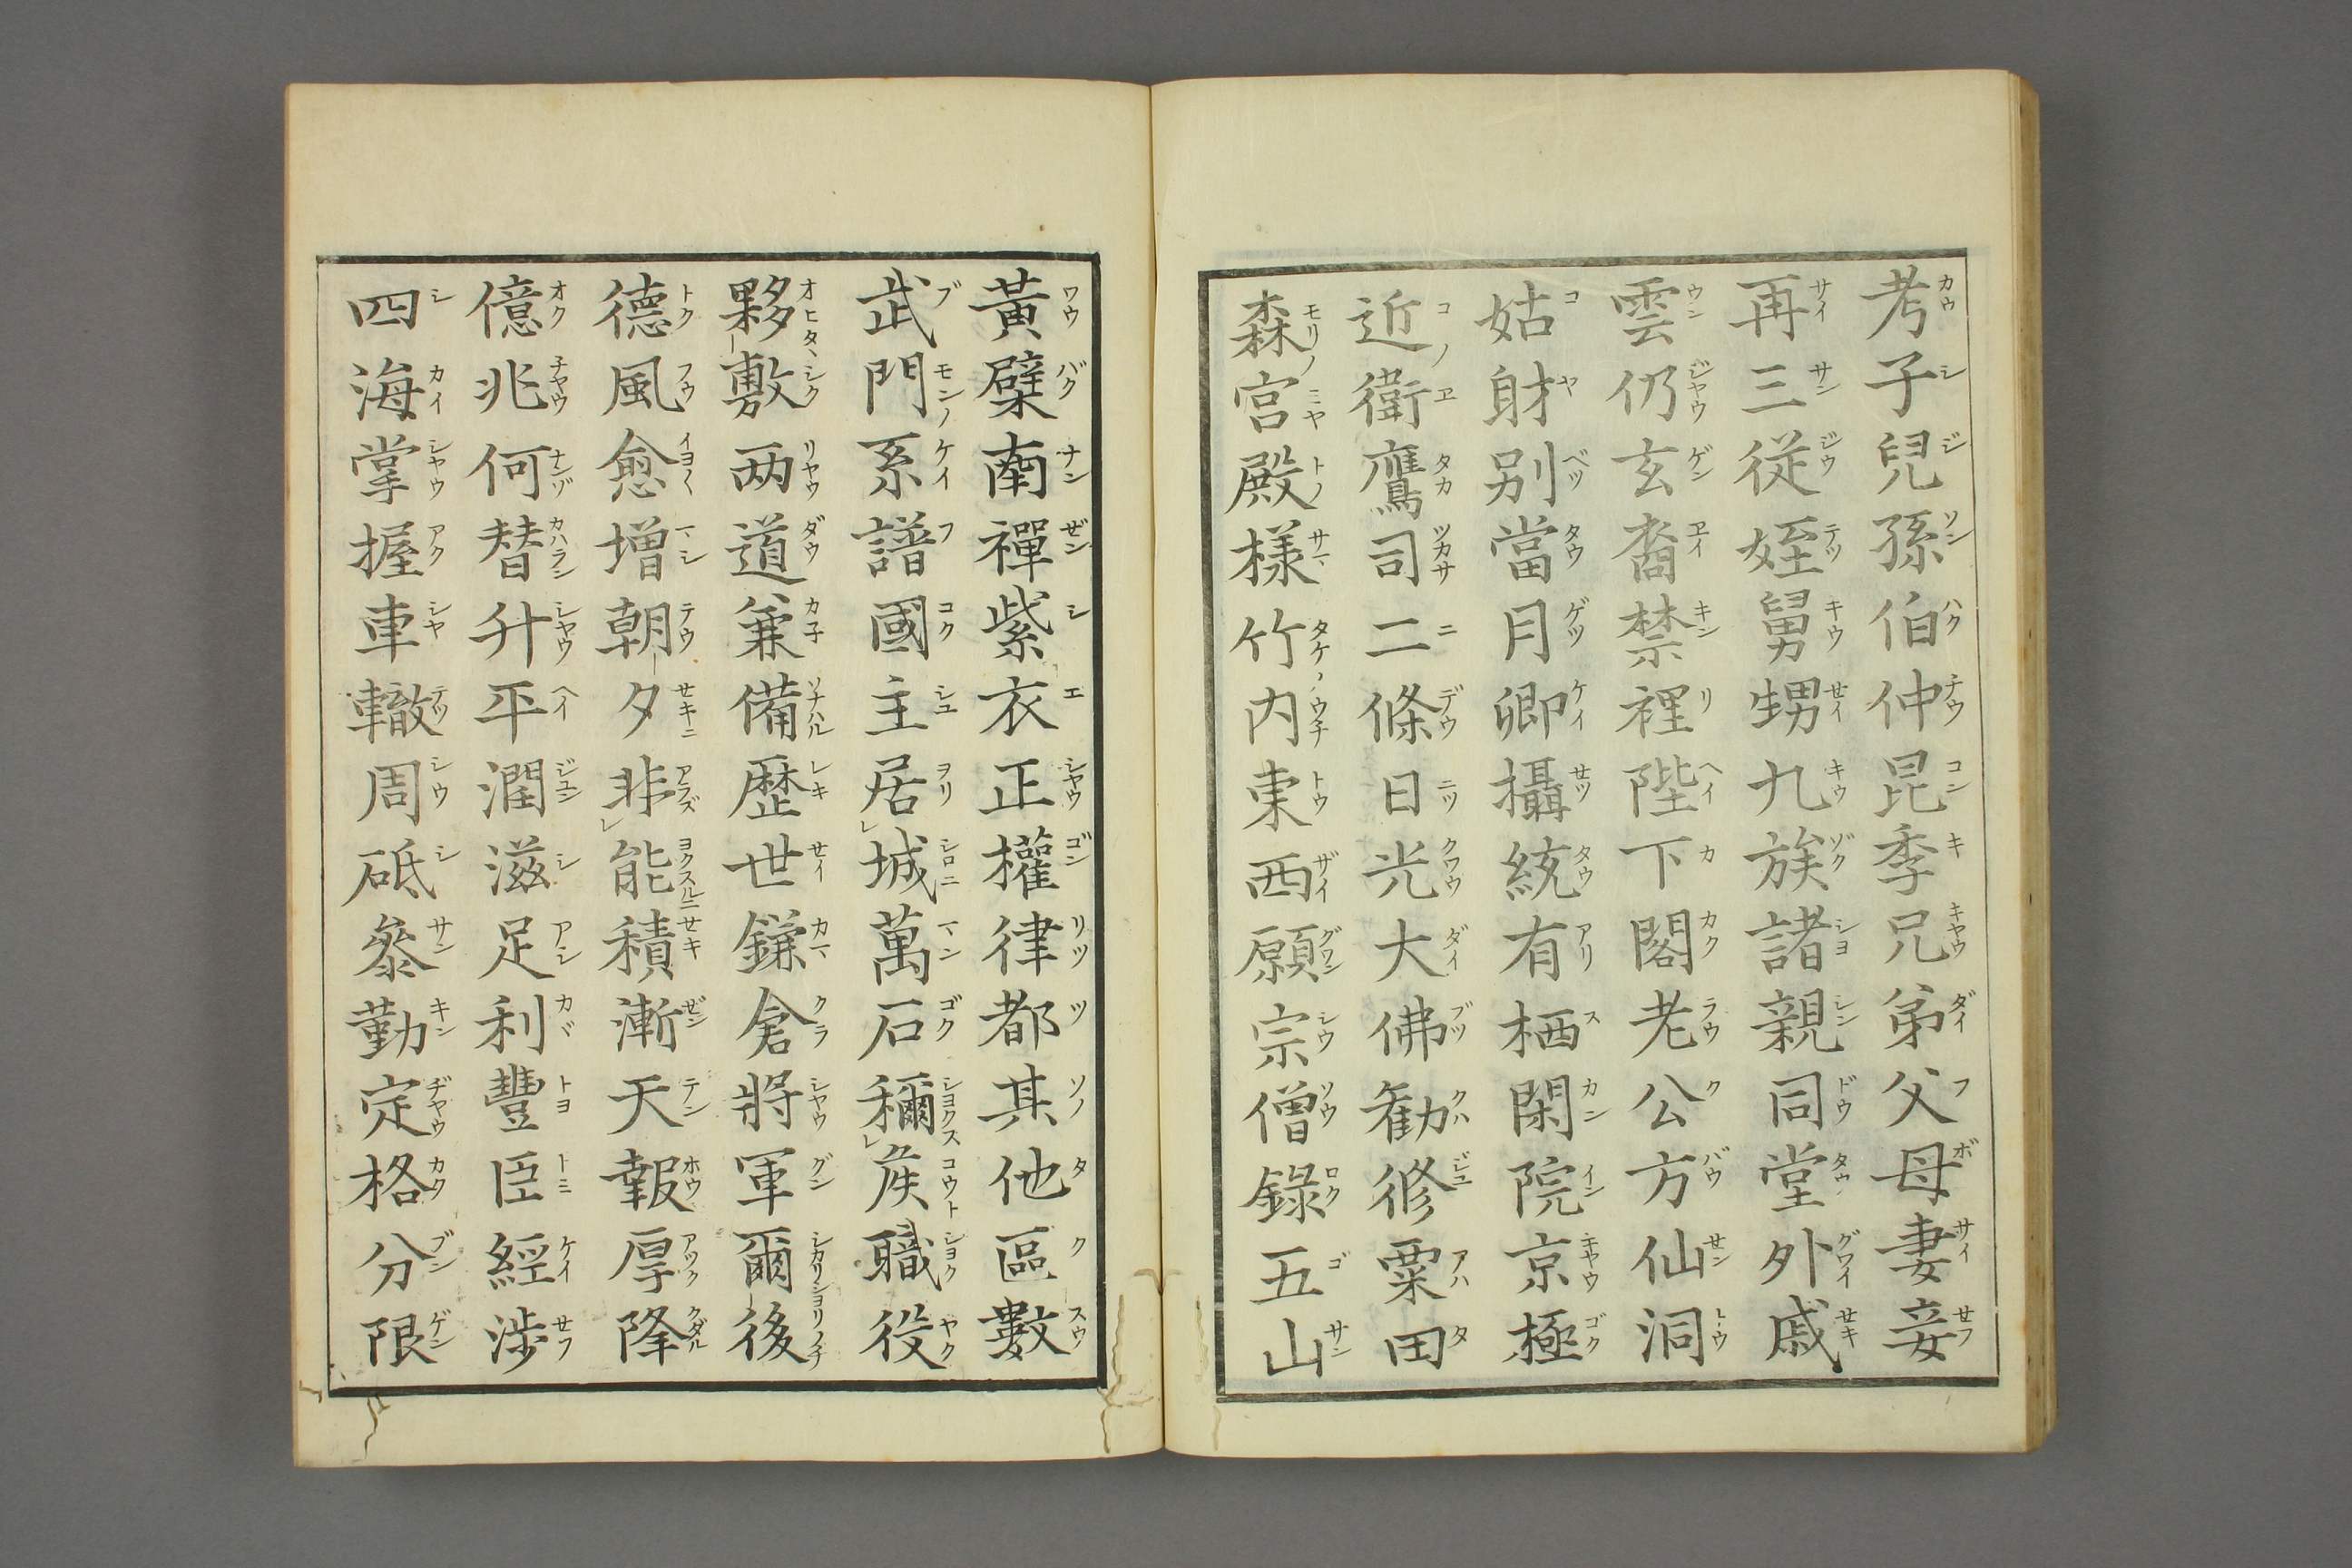 考子兒孫伯仲昆季兄弟父母妻妾
再三従姪舅甥九族諸親同堂外戚
雲仍玄裔禁裡陛下閣老公方仙洞
姑射別當月卿攝統有栖閑院京極
近衛鷹司二條日光大佛勧修粟田
森宮殿樣竹内東西願宗僧録五山
黃檗南禪紫衣正權律都其他區數
武門系譜國主居城萬石穪矦職役
夥敷两道兼備歴世鎌倉將軍爾後
德風愈增朝夕非能積漸天報厚降
億兆何替升平潤滋足利豐臣經渉
四海掌握車轍周砥參勤定格分限